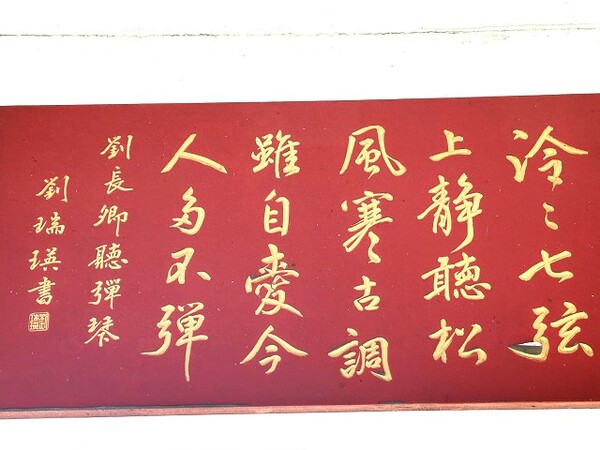 泠〻七弦
上靜聽松
風寒古調
雖自愛今
人多不彈
劉長卿聽彈琴
劉瑞瑛書